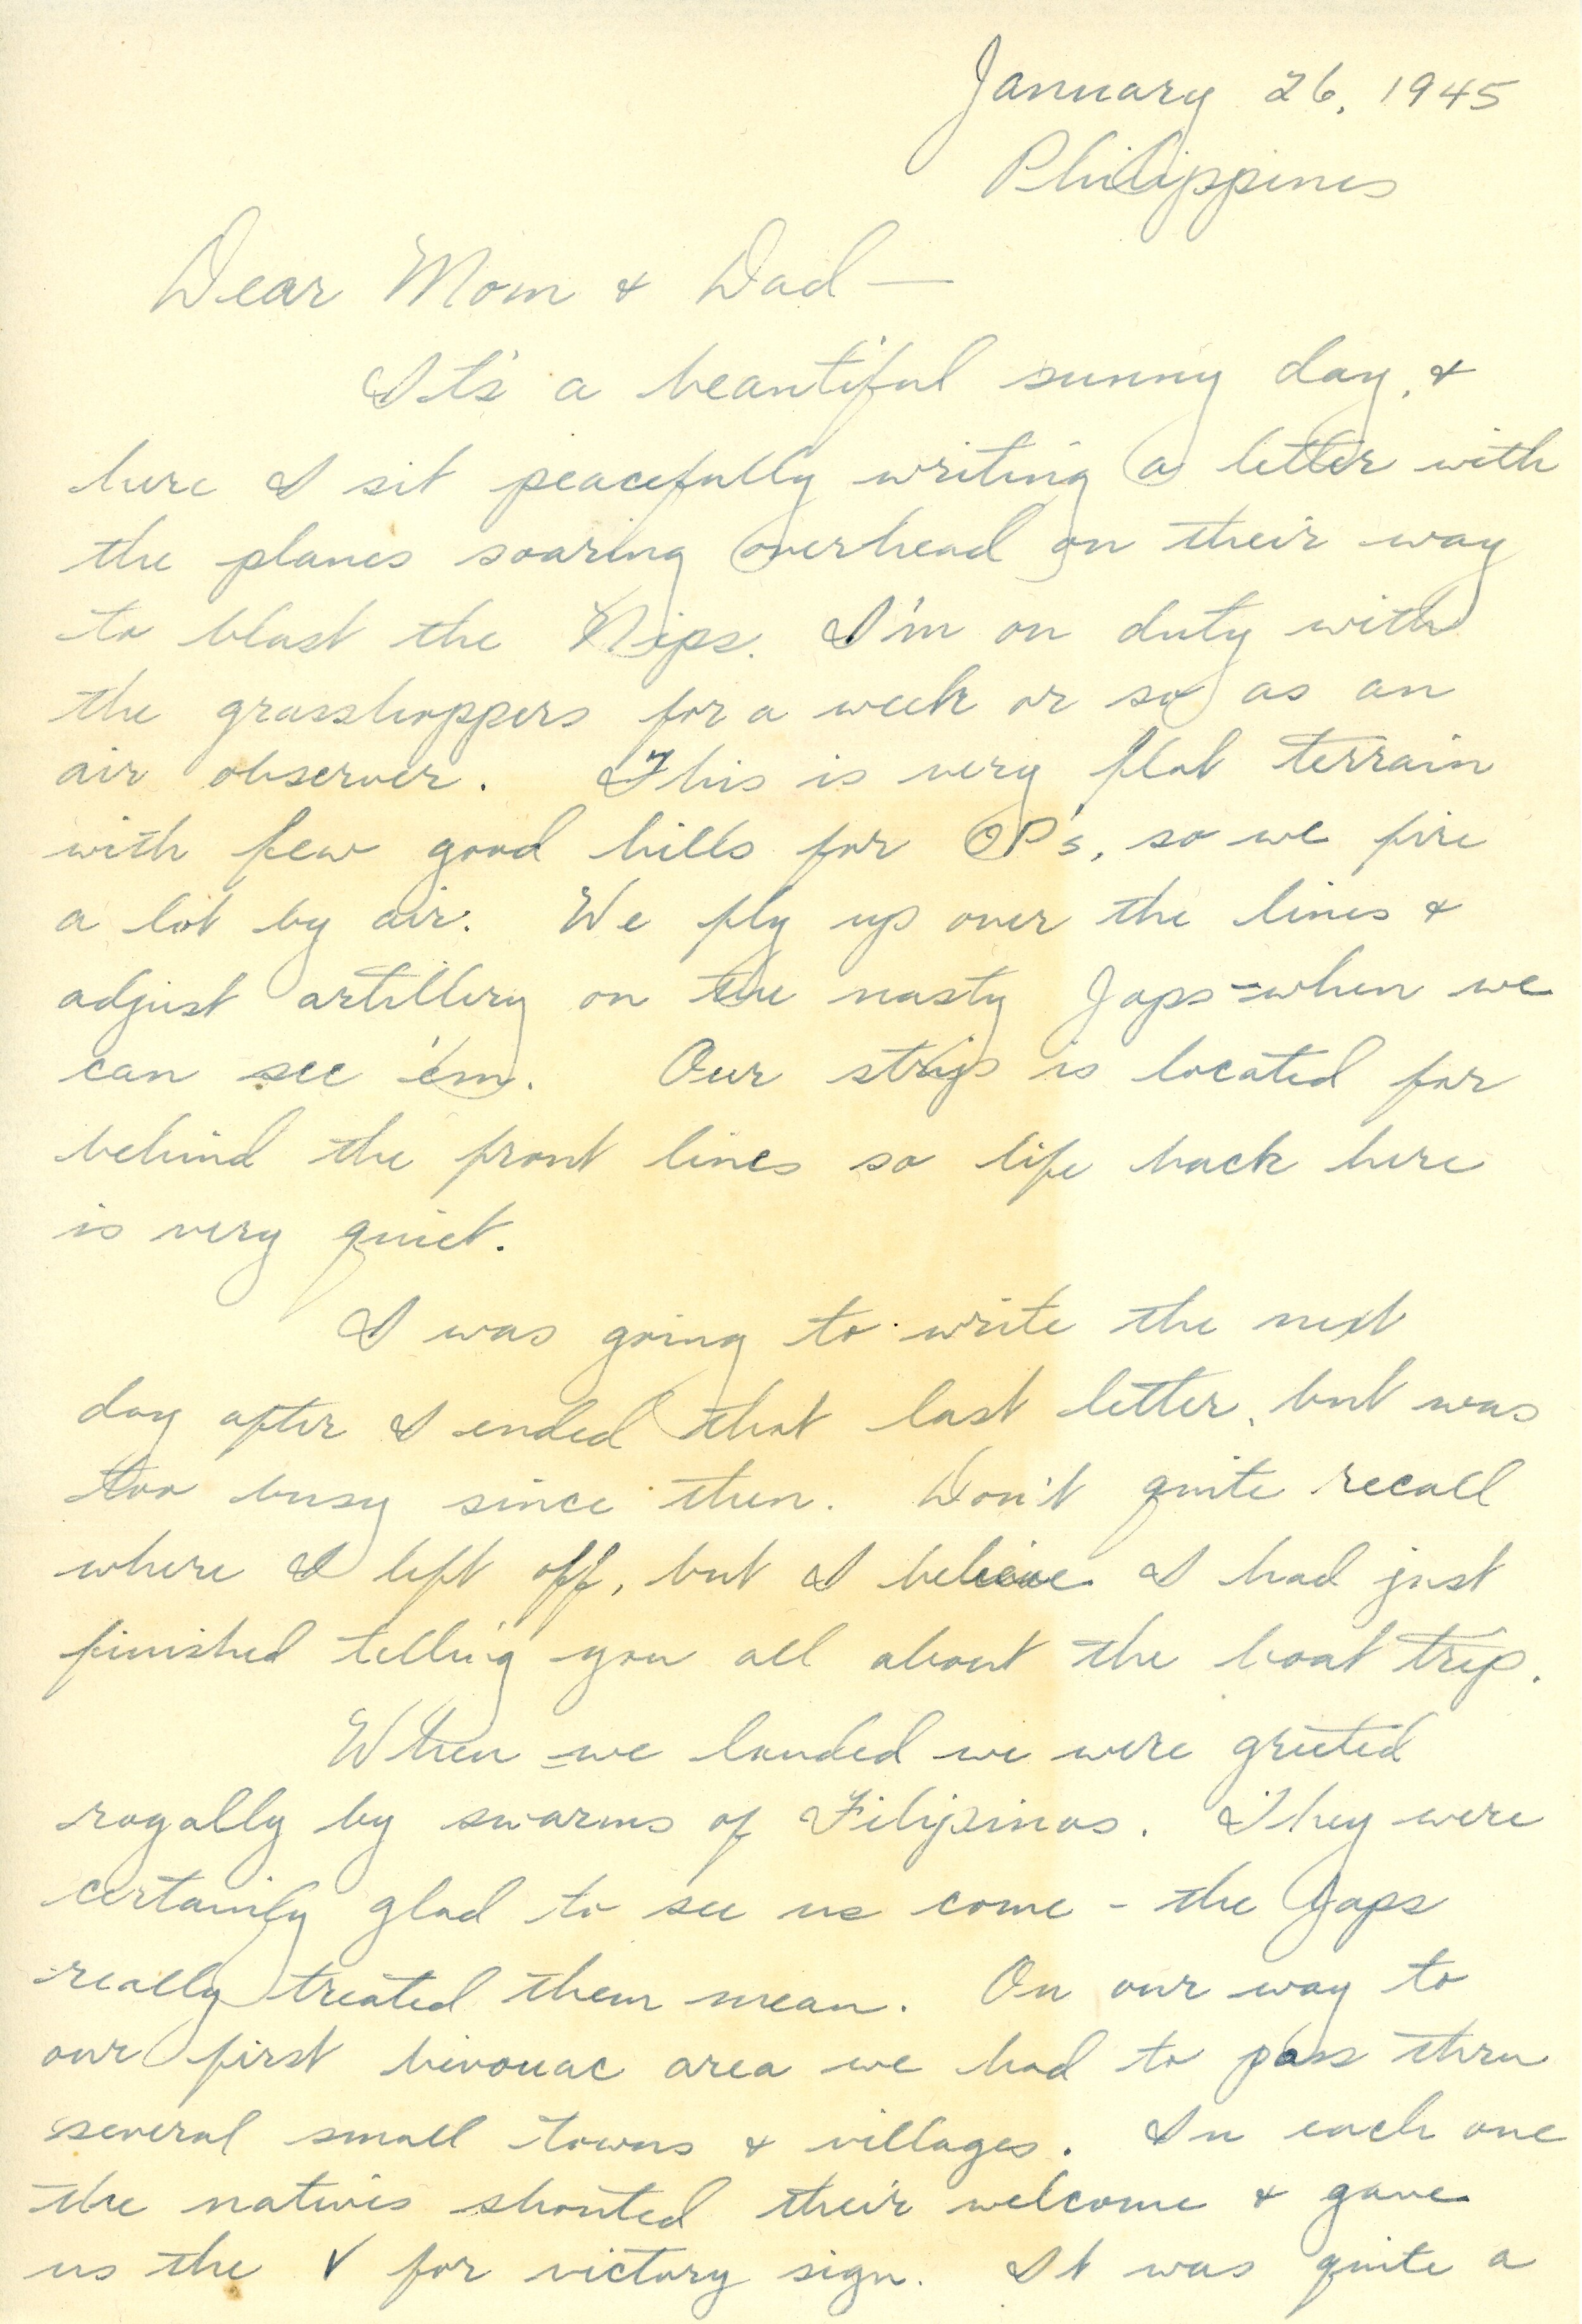 January 26, 1945
Philippines
Dear Mom & Dad —
It's a beautiful sunny day, &
here I sit peacefully writing a letter with
the planes soaring overhead on their way
to blast the Nips. I'm on duty with
the grasshoppers for a week or so as an
air observer. This is very flat terrain
with few good hills for OP's, so we fire
a lot by air. We fly up over the lines &
adjust artillery on the nasty Japs - when we
can see 'em. Our strip is located far
behind the front lines so life back here
is very quiet.
I was going to write the next
day after I ended that last letter, but was
too busy since then. Don't quite recall
where I left off, but I believe I had just
finished telling you all about the boat trip.
When we landed we were greeted
rogally by swarms of Filipinos. They were
certainly glad to see us come - the Japs
really treated them mean. On our way to
our first bivouac area we had to pass thru
several small towns & villages. In each one
the natives shouted their welcome & gave
us the V for victory sign. It was quite a